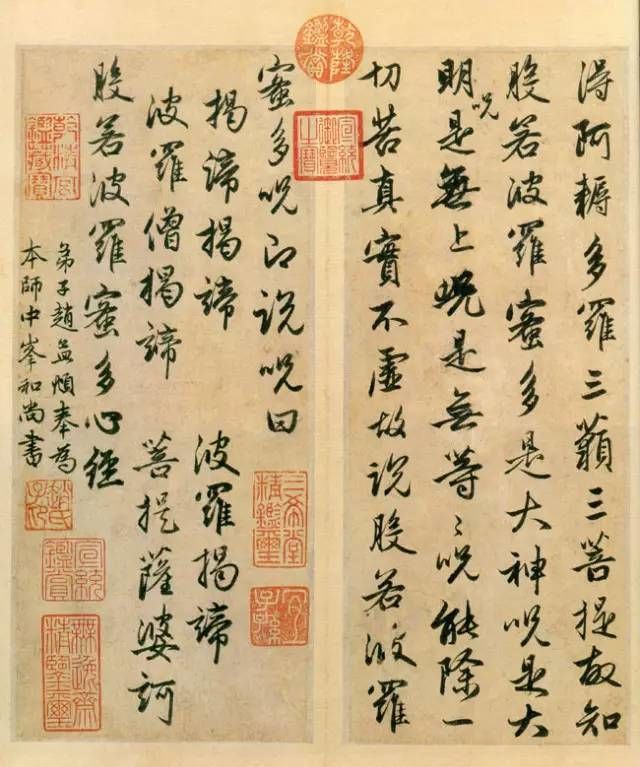 得阿耨多羅三藐三菩提故知
般若波羅蜜多是大神呪是大
明呪是無上呪是無等〻呪能除一
切苦真實不虛故說般若波羅
蜜多呪即說呪曰
揭諦揭諦 波羅揭諦
波羅僧揭諦 菩提薩婆訶
般若波羅蜜多心經
弟子趙孟頫奉為
本師中峯和尚書
乾隆鑑賞
宣統御覽之寶
三希堂精鑑璽
宜子孫
乾隆御覽之寶
趙氏子昂
宣統鑑賞
無逸齋精鑒璽